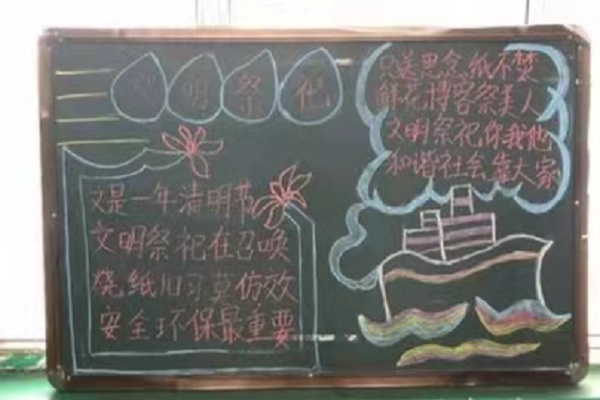 文明祭祀
只送思念纸不焚
鲜花博客祭美人
文明祭祀你我他
和谐社会靠大家
又是一年清明节
文明祭祀在召唤
烧纸旧习莫仿效
安全环保最重要